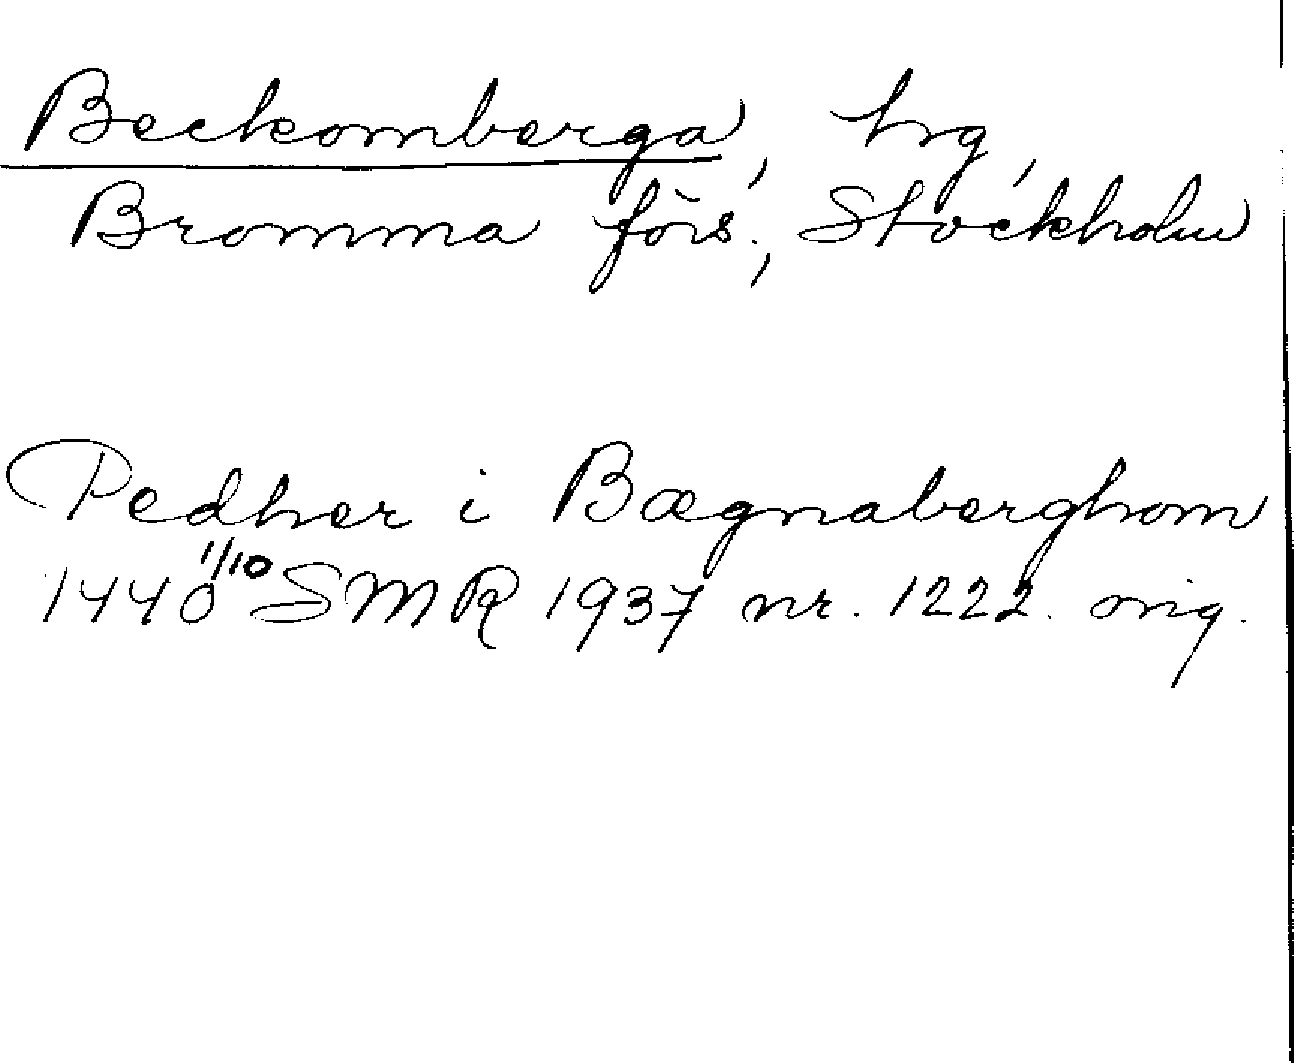 Beckomberga, hrg,
Bromma förs., Stockholm
Pedher i Bægnaberghom
1440 1/10 SMR 1937 nr. 1222. orig.